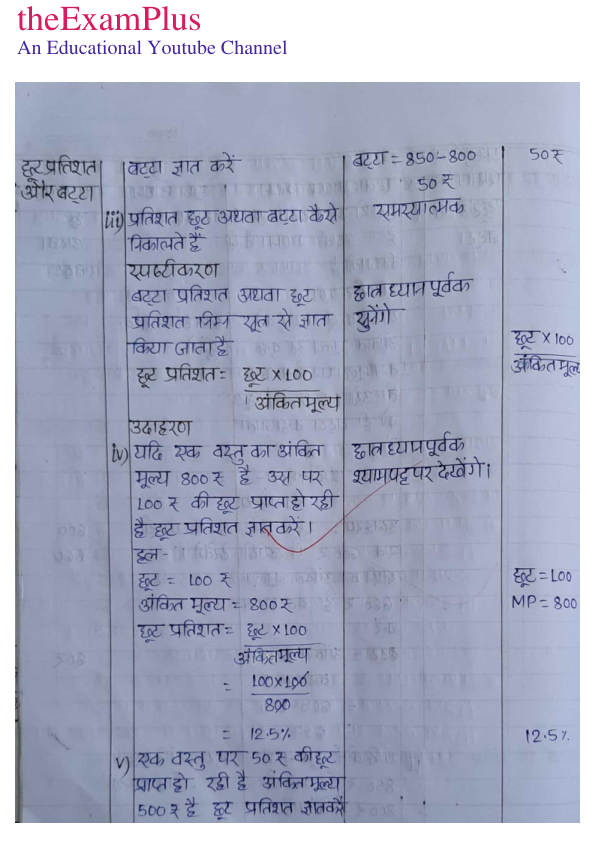 theExamPlus
An Educational Youtube Channel
छूट प्रतिशत
और बट्टा
बट्टा ज्ञात करें
बट्टा = 850-800
50 ₹
50 ₹
iii) प्रतिशत छूट अथवा बट्टा कैसे
निकालते हैं
समस्यात्मक
स्पष्टीकरण
बट्टा प्रतिशत अथवा छूट
प्रतिशत निम्न सूत्र से ज्ञात
किया जाता है
छात्र ध्यानपूर्वक
सुनेंगे
छूट प्रतिशत = छूट × 100
अंकित मूल्य
छूट × 100
अंकित मूल्य
उदाहरण
iv) यदि एक वस्तु का अंकित
मूल्य 800 ₹ है उस पर
100 ₹ की छूट प्राप्त हो रही
है छूट प्रतिशत ज्ञात करें।
छात्र ध्यानपूर्वक
श्यामपट्ट पर देखेंगे।
हल-
छूट = 100 ₹
अंकित मूल्य = 800 ₹
छूट = 100
MP = 800
छूट प्रतिशत = छूट × 100
अंकित मूल्य
= 100×100
800
= 12.5%
12.5%
v) एक वस्तु पर 50 ₹ की छूट
प्राप्त हो रही है अंकित मूल्य
500 ₹ है छूट प्रतिशत ज्ञात करें